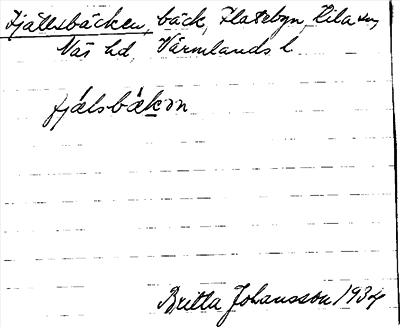 Fjällsbäcken, bäck, Flatebyn, Kila sn,
Näs hd, Värmlands l.
fjælsbækən
Britta Johansson 1934